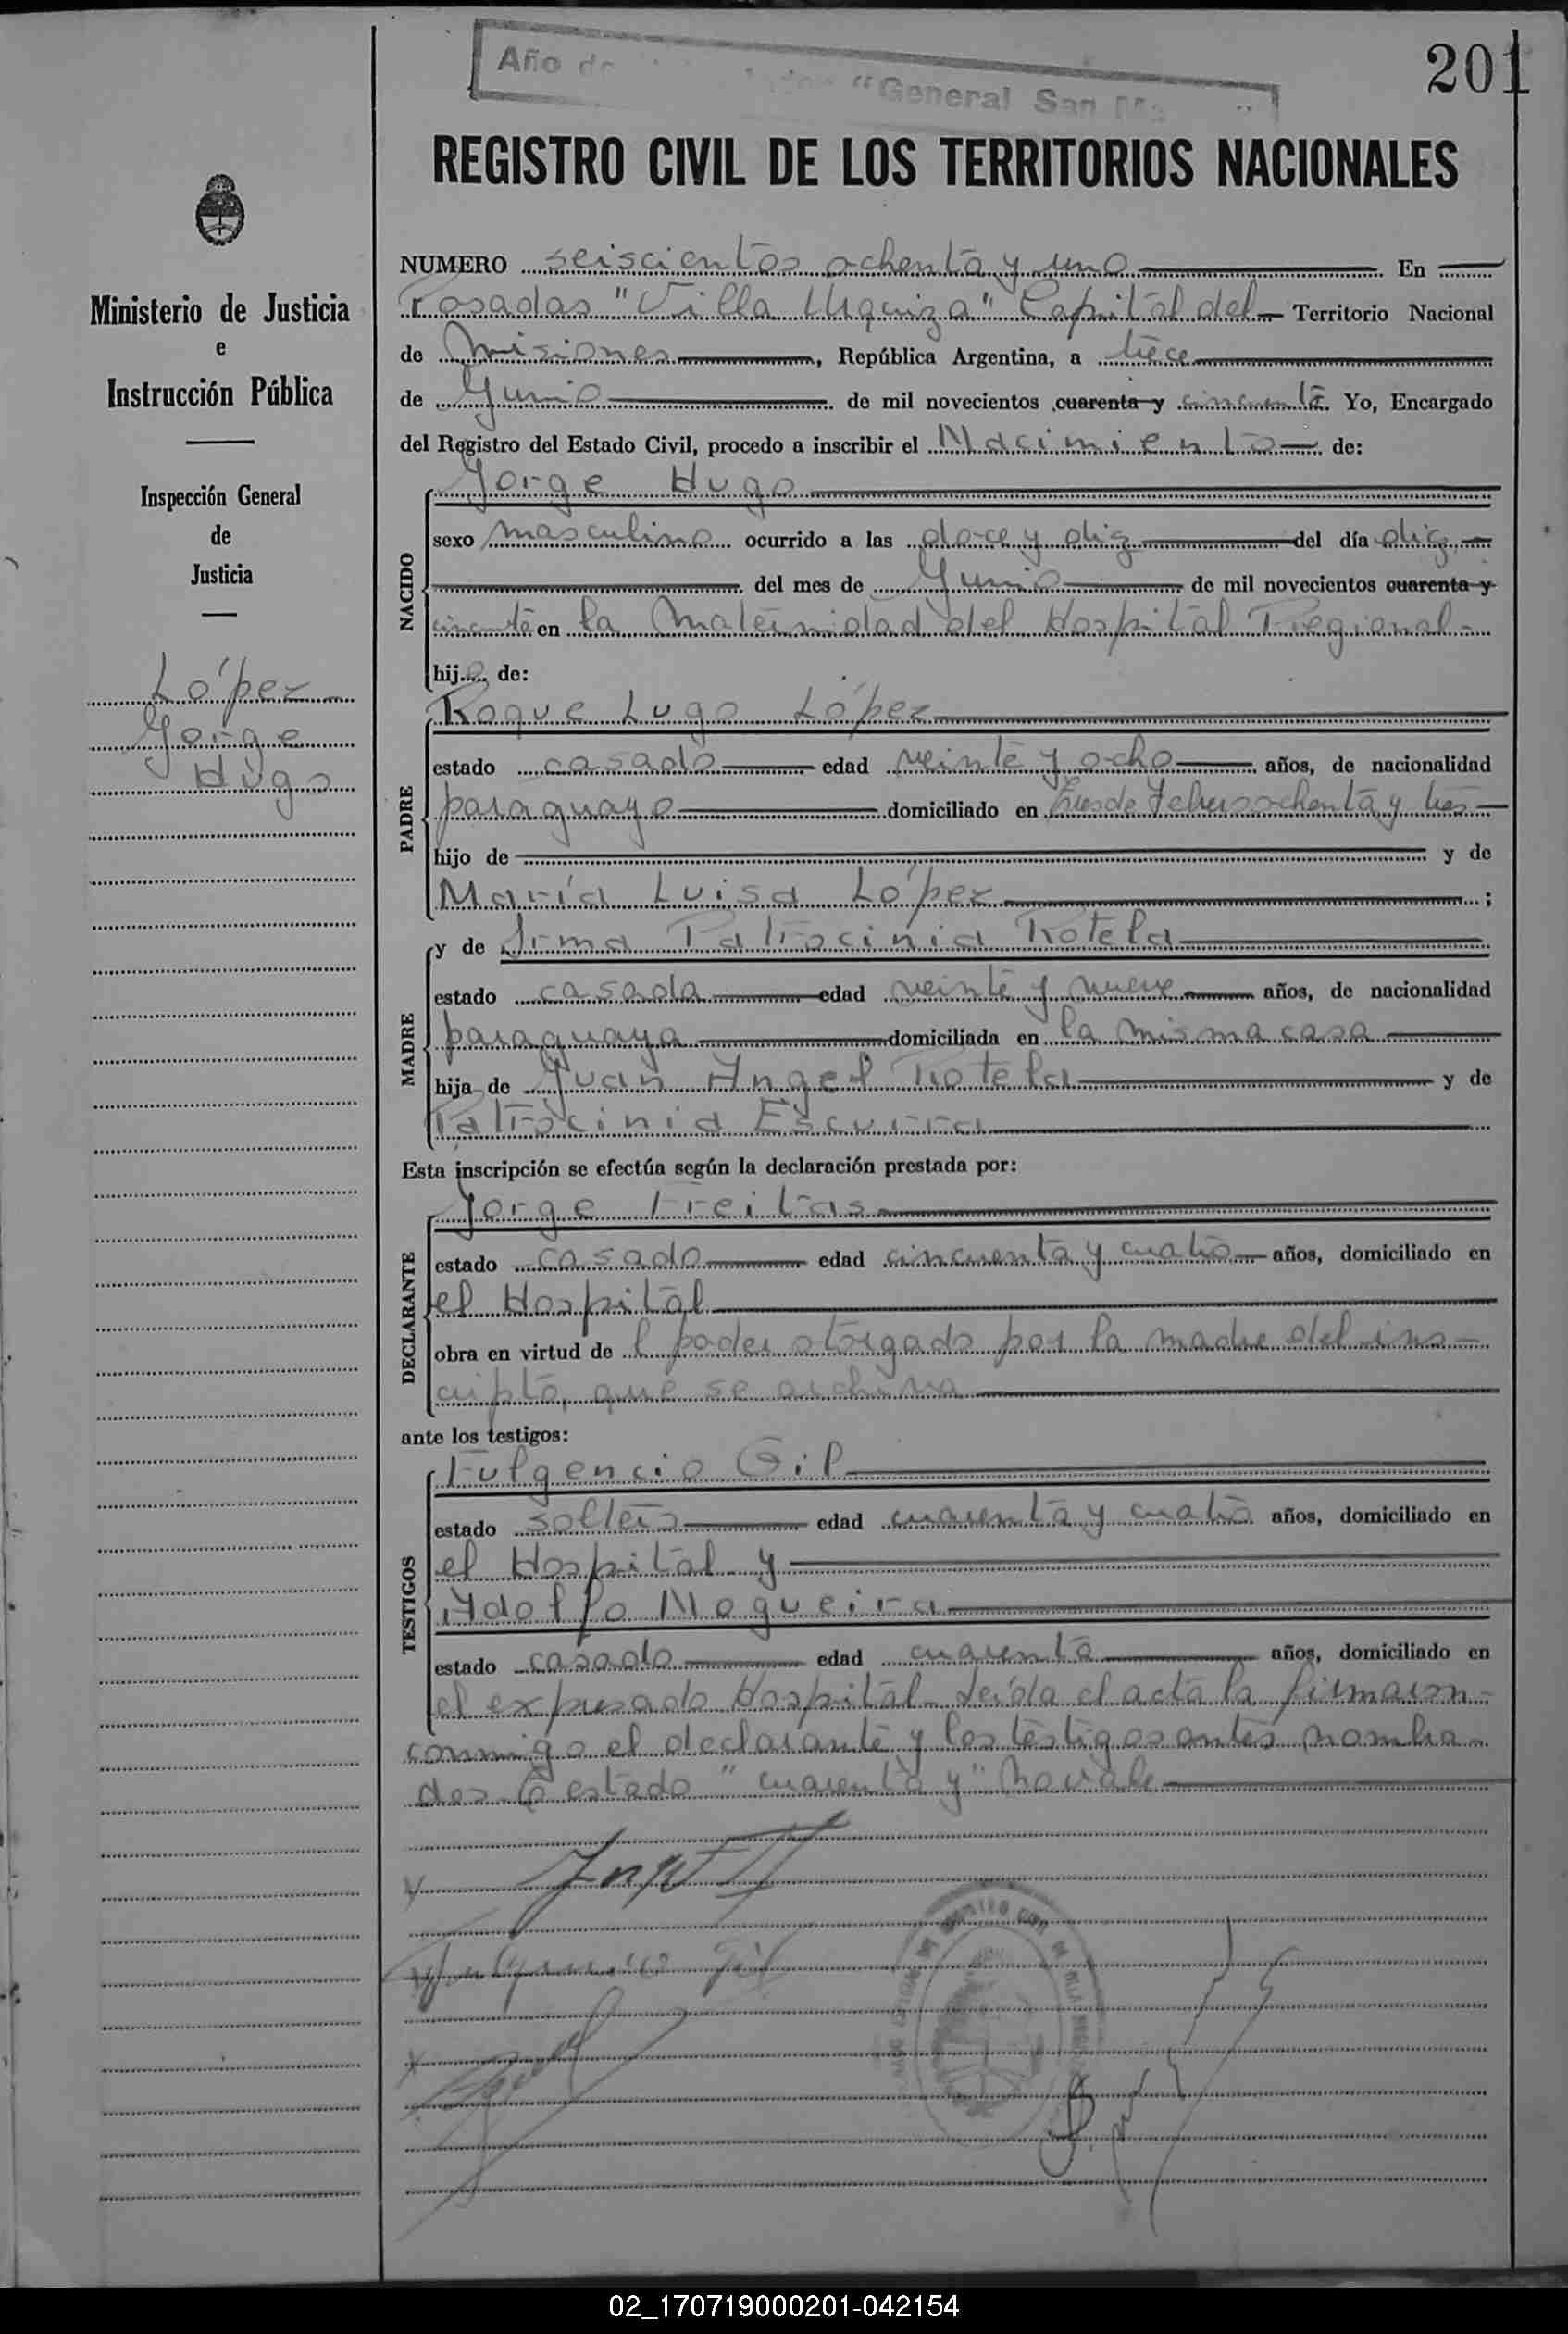 201
Año de "General San Ma
REGISTRO CIVIL DE LOS TERRITORIOS NACIONALES
Ministerio de Justicia
e
Instrucción Pública
Inspección General
de
Justicia
López
Jorge
Hugo
NUMERO seiscientos ochenta y uno En
Posadas "Villa Urquiza" Capital del Territorio Nacional
de Misiones, República Argentina, a trece
de Junio de mil novecientos cuarenta y cincuenta. Yo, Encargado
del Registro del Estado Civil, procedo a inscribir el Nacimiento de:
NACIDO
Jorge Hugo
sexo masculino ocurrido a las doce y diez del día diez
del mes de Junio de mil novecientos cuarenta y
cincuenta en la Maternidad del Hospital Regional
hijo de:
PADRE
Roque Lugo López
estado casado edad veinte y ocho años, de nacionalidad
paraguayo domiciliado en ochenta y tres
hijo de y de
María Luisa López;
MADRE
y de Irma Patrocinia Rotela
estado casada edad veinte y nueve años, de nacionalidad
paraguaya domiciliada en la misma casa
hija de Juan Angel Rotela y de
Patrocinia Escurra
Esta inscripción se efectúa según la declaración prestada por:
DECLARANTE
Jorge Freitas
estado casado edad cincuenta y cuatro años, domiciliado en
el Hospital
obra en virtud de l poder otorgado por la madre del ins-
cripto, que se archiva
ante los testigos:
TESTIGOS
Fulgencio Gil
estado soltero edad cuarenta y cuatro años, domiciliado en
el Hospital y
Adolfo Nogueira
estado casado edad cuarenta años, domiciliado en
el expresado Hospital. Leída el acta la firmaron
conmigo el declarante y los testigos antes nombra-
dos. estado "cuarenta y" No vale
02_170719000201-042154